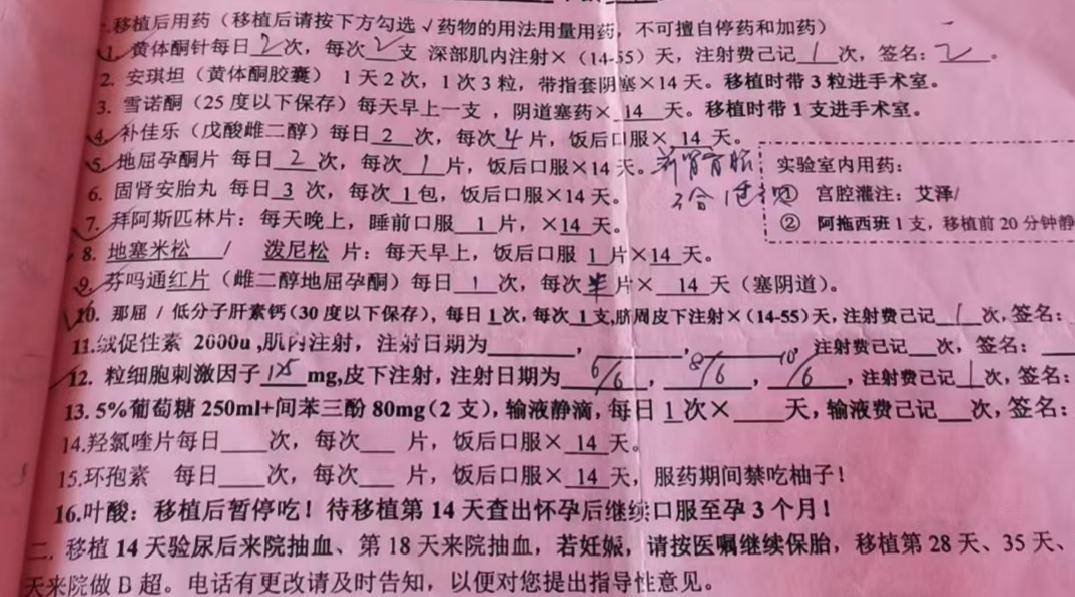 一.移植后用药（移植后请按下方勾选√药物的用法用量用药，不可擅自停药和加药）
1. 黄体酮针每日2次，每次2支 深部肌内注射×（14-55）天，注射费己记1次，签名：
2. 安琪坦（黄体酮胶囊） 1天2次，1次3粒，带指套阴塞×14天。移植时带3粒进手术室。
3. 雪诺酮（25度以下保存）每天早上一支 ，阴道塞药×14天。移植时带1支进手术室。
4. 补佳乐（戊酸雌二醇）每日2次，每次4片，饭后口服×14天。
5. 地屈孕酮片 每日2次，每次1片，饭后口服×14天。
6. 固肾安胎丸 每日3次，每次1包，饭后口服×14天。
实验室内用药：
① 宫腔灌注：艾泽/
② 阿拖西班1支，移植前20分钟静
7. 拜阿斯匹林片：每天晚上，睡前口服1片，×14天。
8. 地塞米松 / 泼尼松 片：每天早上，饭后口服1片×14天。
9. 芬吗通红片（雌二醇地屈孕酮）每日1次，每次半片×14天（塞阴道）。
10. 那屈 / 低分子肝素钙(30度以下保存)，每日1次，每次1支,脐周皮下注射×(14-55)天，注射费己记1次，签名：
11.绒促性素 2000u ,肌内注射，注射日期为___，___，___，注射费己记__次，签名：
12. 粒细胞刺激因子125mg,皮下注射，注射日期为6/6，8/6，10/6，注射费己记1次，签名：
13. 5%葡萄糖250ml+间苯三酚80mg(2支)，输液静滴，每日1次×___天，输液费己记__次，签名：
14.羟氯喹片每日___次，每次___片，饭后口服×14天。
15.环孢素 每日___次，每次___片，饭后口服×14天，服药期间禁吃柚子！
16.叶酸：移植后暂停吃！待移植第14天查出怀孕后继续口服至孕3个月！
二. 移植14天验尿后来院抽血、第18天来院抽血，若妊娠，请按医嘱继续保胎，移植第28天、35天、
天来院做B超。电话有更改请及时告知，以便对您提出指导性意见。